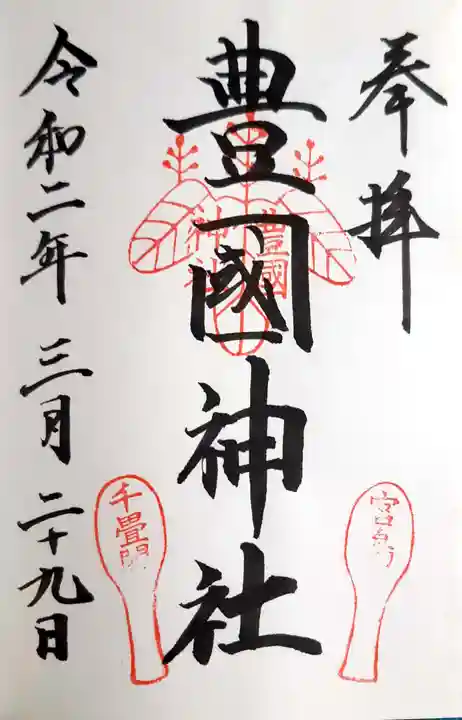 奉拝
豊國神社
豊國
神社
宮島
千畳閣
令和二年 三月 二十九日